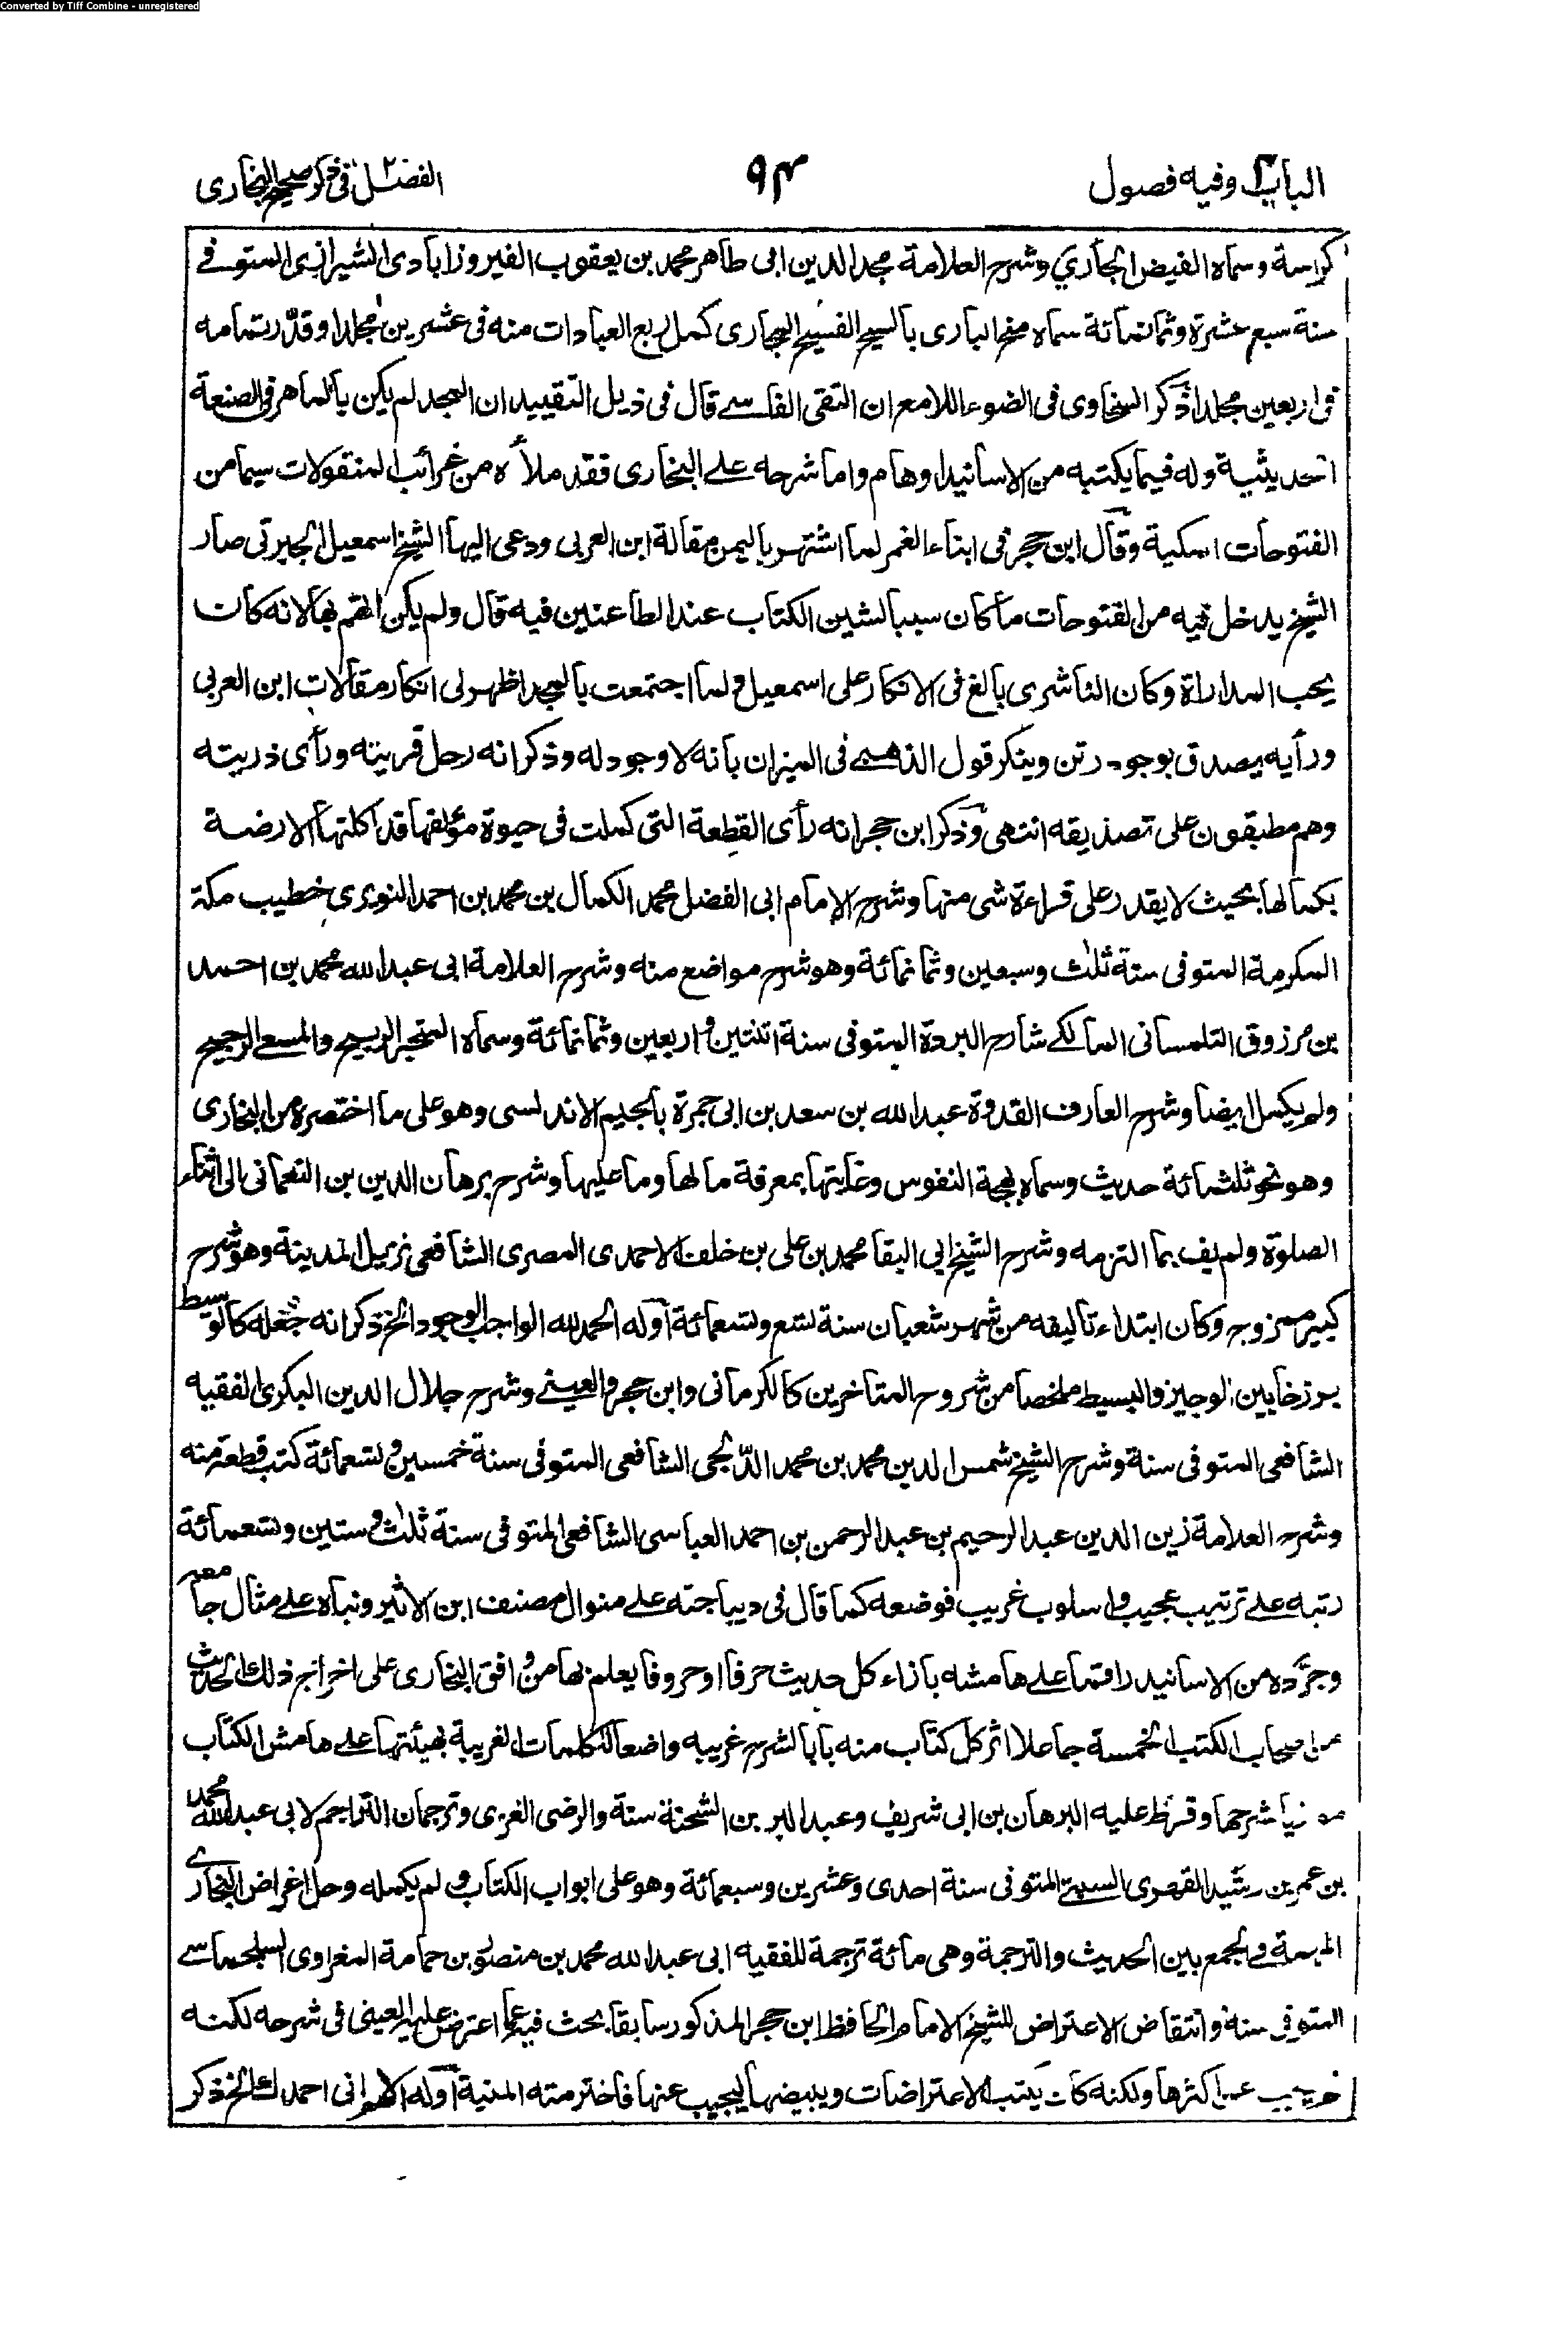 Converted by Tiff Combine - unregistered
الباب وفيه فصول
٩٤
الفصل في ذكر صحيح البخارى
كراسة وسماه الفيض الجاري وشرح العلامة مجد الدين ابى طاهر محمد بن يعقوب الفيروزابادى الشيرازى المتوفے
سنة سبع عشرة وثمانمائة سماه منح البارى بالسيح الفسيح المجارى كمل ربع العبادات منه فى عشرين مجلدا وقدّر تمامه
فى اربعين مجلدا ذكر السخاوى فى الضوء اللامع ان التقى الفاسے قال فى ذيل التقييد ان المجد لم يكن بالماهر فى الصنعة
الحديثية وله فيما يكتبه من الاسانيد اوهام واما شرحه علے البخارى فقد ملأه من غرائب المنقولات سيما من
الفتوحات المكية وقال ابن حجر فى ابناء الغمر لما اشتهر باليمن مقالة ابن العربى ودعى اليها الشيخ اسمعيل الجبرتى صار
الشيخ يدخل فيه من الفتوحات ما كان سببا لشين الكتاب عند الطاعنين فيه قال ولم يكن اتهم بها لانه كان
يحب المداراة وكان الناشرى بالغ فى الانكار على اسمعيل ولما اجتمعت بالمجد اظهر لى انكار مقالات ابن العربى
ورأيه يصدق بوجود رتن وينكر قول الذهبے فى الميزان بانه لا وجود له وذكر انه رحل قريته ورأى ذريته
وهم مطبقون على تصديقه انتهى وذكر ابن حجر انه رأى القطعة التى كملت فى حيوة مؤلفها قد اكلتها الارضة
بكمالها بحيث لا يقدر على قراءة شى منها وشرح الامام ابى الفضل محمد الكمال بن محمد بن احمد النويرى خطيب مكة
المكرمة المتوفى سنة ثلث وسبعين وثمانمائة وهو شرح مواضع منه وشرح العلامة ابى عبد الله محمد بن احمد
بن مرزوق التلمسانى المالكے شارح البردة المتوفى سنة اثنتين واربعين وثمانمائة وسماه المتجر الربيح والمسعے الرجيح
ولم يكمل ايضا وشرح العارف القدوة عبد الله بن سعد بن ابى جمرة بالجيم الاندلسى وهو على ما اختصره من البخارى
وهو نحو ثلثمائة حديث وسماه بهجة النفوس وغايتها بمعرفة ما لها وما عليها وشرح برهان الدين بن النعمانى الى اثناء
الصلوة ولم يف بما التزمه وشرح الشيخ ابى البقا محمد بن على بن خلف الاحمدى المصرى الشافعى نزيل المدينة وهو شرح
كبير ممزوج وكان ابتداء تاليفه من شهر شعبان سنة تسع وتسعمائة اوله الحمد لله الواجب الوجود الخ ذكر انه جعله كالوسيط
برزخا بين الوجيز والبسيط ملخصا من شروح المتاخرين كالكرمانى وابن حجر والعينے وشرح جلال الدين البكرى الفقيه
الشافعى المتوفى سنة وشرح الشيخ شمس الدين محمد بن محمد الدّلجى الشافعى المتوفى سنة خمسين وتسعمائة كتب قطعة منه
وشرح العلامة زين الدين عبد الرحيم بن عبد الرحمن بن احمد العباسى الشافعى المتوفى سنة ثلث وستين وتسعمائة
رتبه علے ترتيب عجيب واسلوب غريب فوضعه كما قال فى ديباجته علے منوال مصنف ابن الاثير وبناه علے مثال جامعه
وجرّده من الاسانيد راقما علے هامشه بازاء كل حديث حرفا او حروفا يعلم بها من وافق البخارى على اخراج ذلك الحديث
من اصحاب الكتب الخمسة جاعلا اثر كل كتاب منه بابا لشرح غريبه واضعا للكلمات الغريبة بهيئتها علے هامش الكتاب
موازيا شرحها وقرظ عليه البرهان بن ابى شريف وعبد البر بن الشحنة سنة والرضى الغزى وترجمان التراجم لابى عبد الله محمد
بن عمر بن رشيد الفهرى السبتے المتوفى سنة احدى وعشرين وسبعمائة وهو على ابواب الكتاب ولم يكمله وحل اغراض البخارے
المبهمة فى الجمع بين الحديث والترجمة وهى مائة ترجمة للفقيه ابى عبد الله محمد بن منصور بن حمامة المغراوى السلجماسے
المتوفى سنة وانتقاض الاعتراض للشيخ الامام الحافظ ابن حجر المذكور سابقا بحث فيه عما اعترض عليه العينى فى شرحه لكنه
لم يجب عن اكثرها ولكنه كان يكتب الاعتراضات ويبيضها ليجيب عنها فاخترمته المنية اوله اللهم انى احمدك الخ ذكر